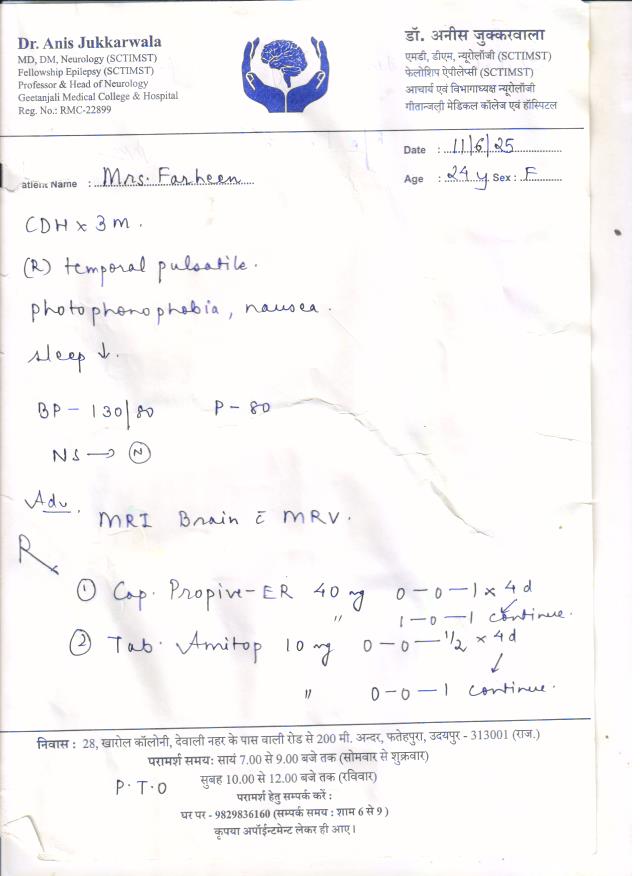 Dr. Anis Jukkarwala
MD, DM, Neurology (SCTIMST)
Fellowship Epilepsy (SCTIMST)
Professor & Head of Neurology
Geetanjali Medical College & Hospital
Reg. No.: RMC-22899
डॉ. अनीस जुक्करवाला
एमडी, डीएम, न्यूरोलॉजी (SCTIMST)
फेलोशिप ऐपीलेप्सी (SCTIMST)
आचार्य एवं विभागाध्यक्ष न्यूरोलॉजी
गीतान्जली मेडिकल कॉलेज एवं हॉस्पिटल
Date : 11/6/25
atient Name : Mrs. Farheen
Age : 24 y Sex : F
CDH x 3 m.
(R) temporal pulsatile.
photophonophobia, nausea.
sleep ↓.
BP - 130/80 P - 80
NS → (N)
Adv.
MRI Brain c̄ MRV.
Rx
(1) Cap. Propive-ER 40 mg 0-0-1 x 4d
" 1-0-1 continue.
(2) Tab. Amitop 10 mg 0-0-1/2 x 4d
↓
" 0-0-1 continue.
निवास : 28, खारोल कॉलोनी, देवाली नहर के पास वाली रोड से 200 मी. अन्दर, फतेहपुरा, उदयपुर - 313001 (राज.)
परामर्श समय: सायं 7.00 से 9.00 बजे तक (सोमवार से शुक्रवार)
सुबह 10.00 से 12.00 बजे तक (रविवार)
P.T.O
परामर्श हेतु सम्पर्क करें :
घर पर - 9829836160 (सम्पर्क समय : शाम 6 से 9 )
कृपया अपॉईन्टमेन्ट लेकर ही आए।